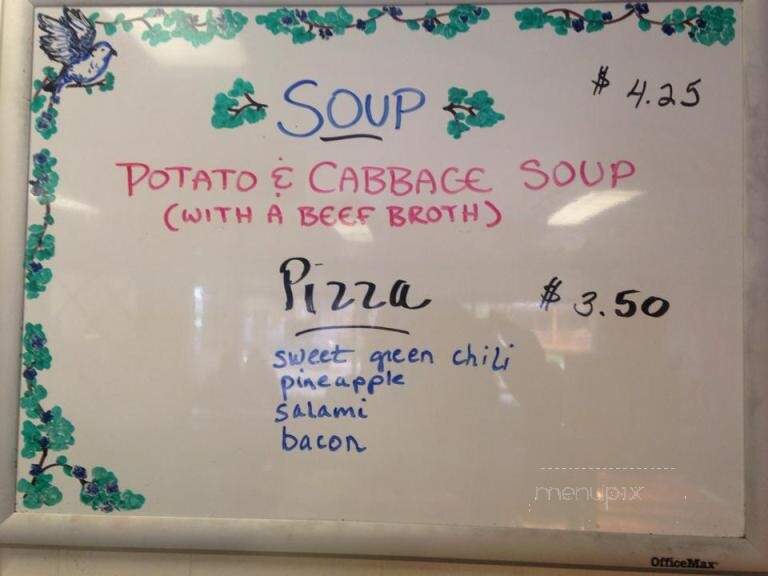 SOUP
$ 4.25
POTATO & CABBAGE SOUP
(WITH A BEEF BROTH)
Pizza
$ 3.50
sweet green chili
pineapple
salami
bacon
menupix
OfficeMax